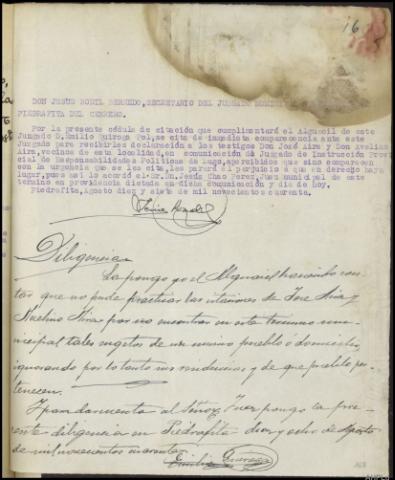 16
DON JESUS BODIL BERMUDO, SECRETARIO DEL JUZGADO
PIEDRAFITA DEL CEBRERO.
Por la presente cédula de citación que cumplimentará el Alguacil de este
Juzgado D. Emilio Quiroga Pol, se cita de inmediata comparecencia ante este
Juzgado para recibirles declaración a los testigos Don José Aira y Don Avelino
Aira, vecinos de esta localidad, en comunicación dl Juzgado de Instrucción Provin
cial de Responsabilidades Politicas de Lugo, apercibidos que sino comparecen
con la urgencia que se les cita, les parará el perjuicio a que en derecho haya
lugar, pues así lo acordó el Sr. Dn. Jesús Chao Perez, Juez municipal de este
termino en providencia dictada en dicha comunicación y dia de hoy.
Piedrafita, Agosto diez y siete de mil novecientos cuarenta.
Diligencia
La pongo yo el Alguacil haciendo cons-
tar que no pude practicar las citaciones de Jose Aira y
Avelino Aira por no encontrar en este termino muni-
cipal tales sugetos de un mismo pueblo ó domicilio,
ignorando por lo tanto su residencia y de que pueblo per-
tenecen.
Y para dar cuenta al señor Juez pongo la pre-
sente diligencia en Piedrafita diez y ocho de Agosto
de mil novecientos cuarenta.
Emilio Quiroga